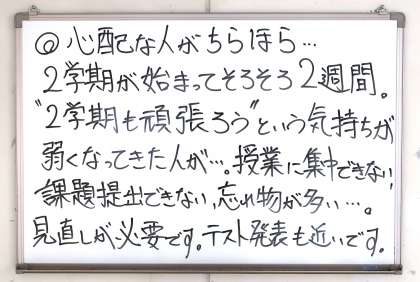 ◎心配な人がちらほら…
2学期が始まってそろそろ2週間。
"2学期も頑張ろう"という気持ちが
弱くなってきた人が…。授業に集中できない、
課題提出できない、忘れ物が多い…。
見直しが必要です。テスト発表も近いです。